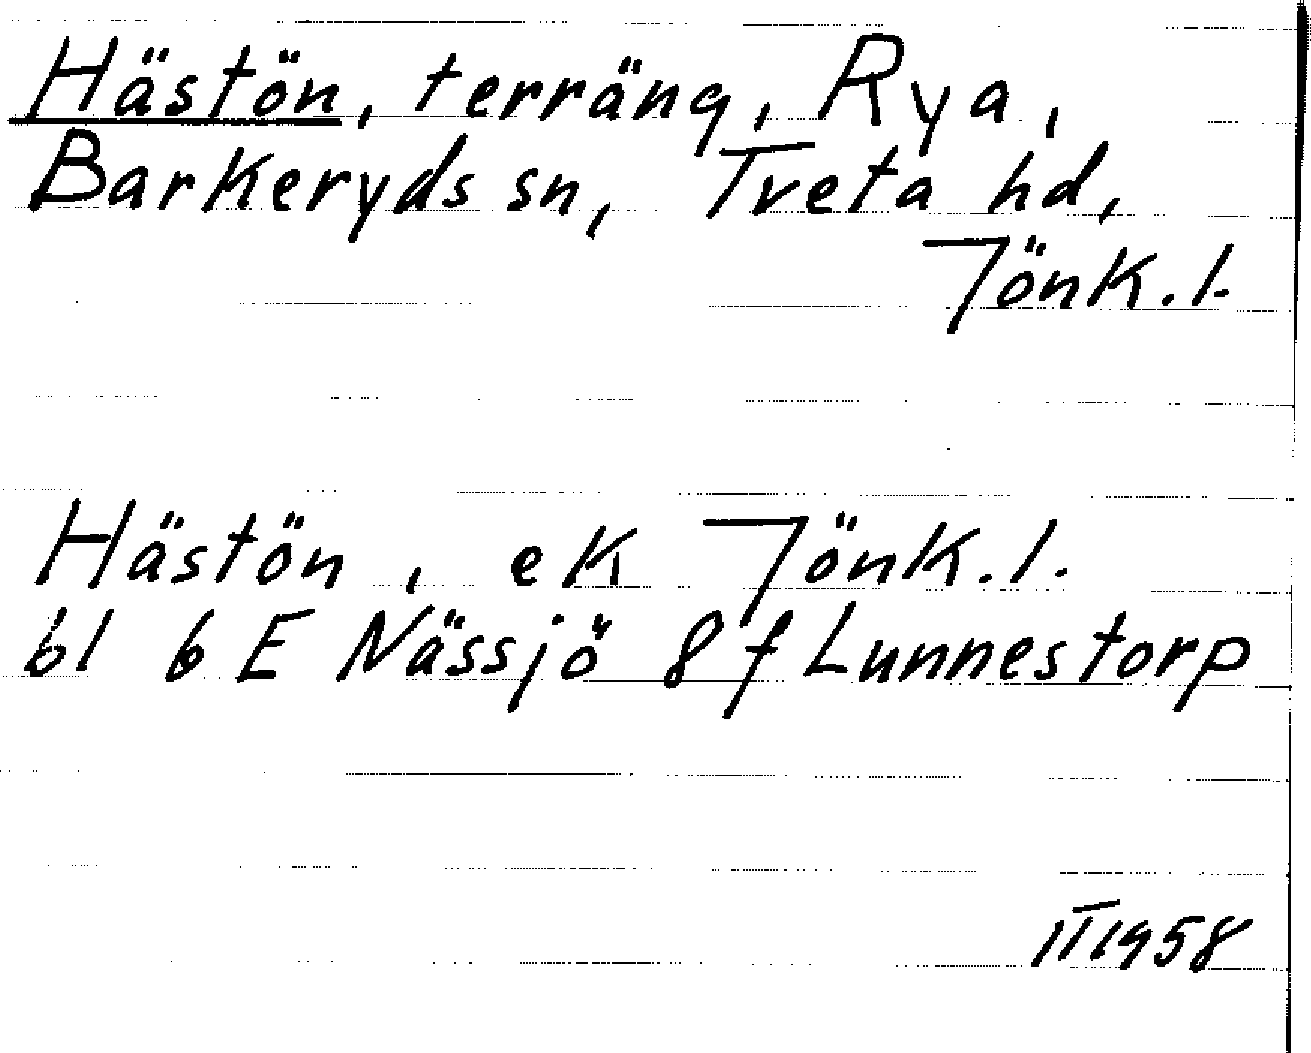 Hästön, terräng, Rya,
Barkeryds sn, Tveta hd,
Jönk.l.
Hästön, ek Jönk.l.
bl 6E Nässjö 8f Lunnestorp
1958